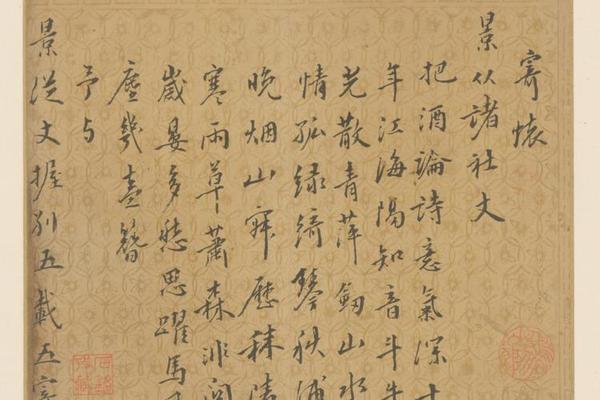 寄懷
景从諸社丈
把酒論詩意氣深十
年江海隔知音斗牛
光散青萍劒山水
情孤绿綺琴秋浦
晚烟山寂歷秣陵
寒雨草蕭森非
歲晏多愁思躍馬
塵幾盍簪
予与
景從丈握别五載五寄